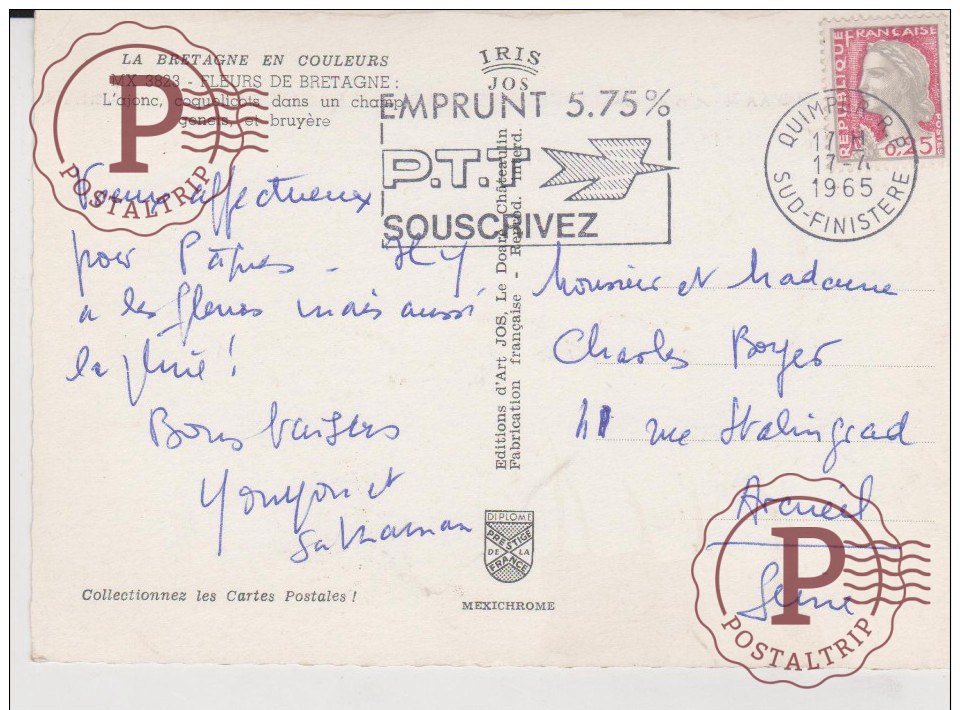 LA BRETAGNE EN COULEURS
MX 3823 - FLEURS DE BRETAGNE :
L'ajonc, coquelicots dans un champ,
genets, et bruyère
P
POSTALTRIP
affectueux
pour Pâques - Il y
a les fleurs mais aussi
la pluie !
Bons baisers
et
sa maman
Collectionnez les Cartes Postales !
IRIS
JOS
EMPRUNT 5.75%
P.T.T
SOUSCRIVEZ
Editions d'Art JOS, Le Doaré, Châteaulin
Fabrication française - Reprod. interd.
DIPLOME
PRESTIGE
DE LA
FRANCE
MEXICHROME
REPUBLIQUE FRANÇAISE
POSTES
0,25
QUIMPER R.P.
17 H
1965
SUD-FINISTERE
Monsieur et Madame
Charles Boyer
11 rue Stalingrad
Arcueil
Seine
P
POSTALTRIP